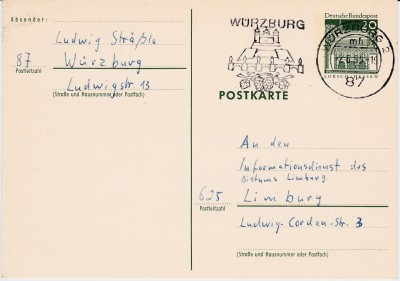 Absender:
Ludwig Sträßle
87
Würzburg
Postleitzahl
Ludwigstr. 13
(Straße und Hausnummer oder Postfach)
WÜRZBURG
Deutsche Bundespost
20
LORSCH/HESSEN
WÜRZBURG 2
mh
87
POSTKARTE
An den
Informationsdienst des
Bistums Limburg
625
Limburg
Postleitzahl
Ludwig-Corden-Str. 3
(Straße und Hausnummer oder Postfach)